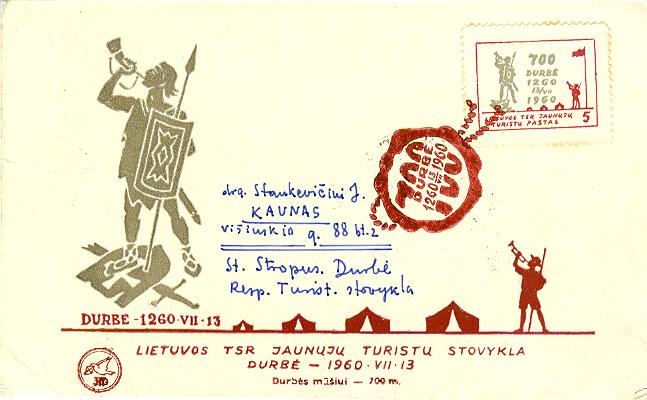 700
DURBĖ
1260
13/VII
1960
LIETUVOS TSR JAUNŲJŲ
TURISTŲ PAŠTAS 5
700
DURBĖ
1260 13/VII 1960
drg. Stankevičiui J.
KAUNAS
g. 88 bt. 2
St. Stropus. Durbė
Resp. Turist. stovykla
DURBĖ - 1260 · VII · 13
LIETUVOS TSR JAUNŲJŲ TURISTŲ STOVYKLA
DURBĖ — 1960 · VII · 13
Durbės mūšiui — 700 m.